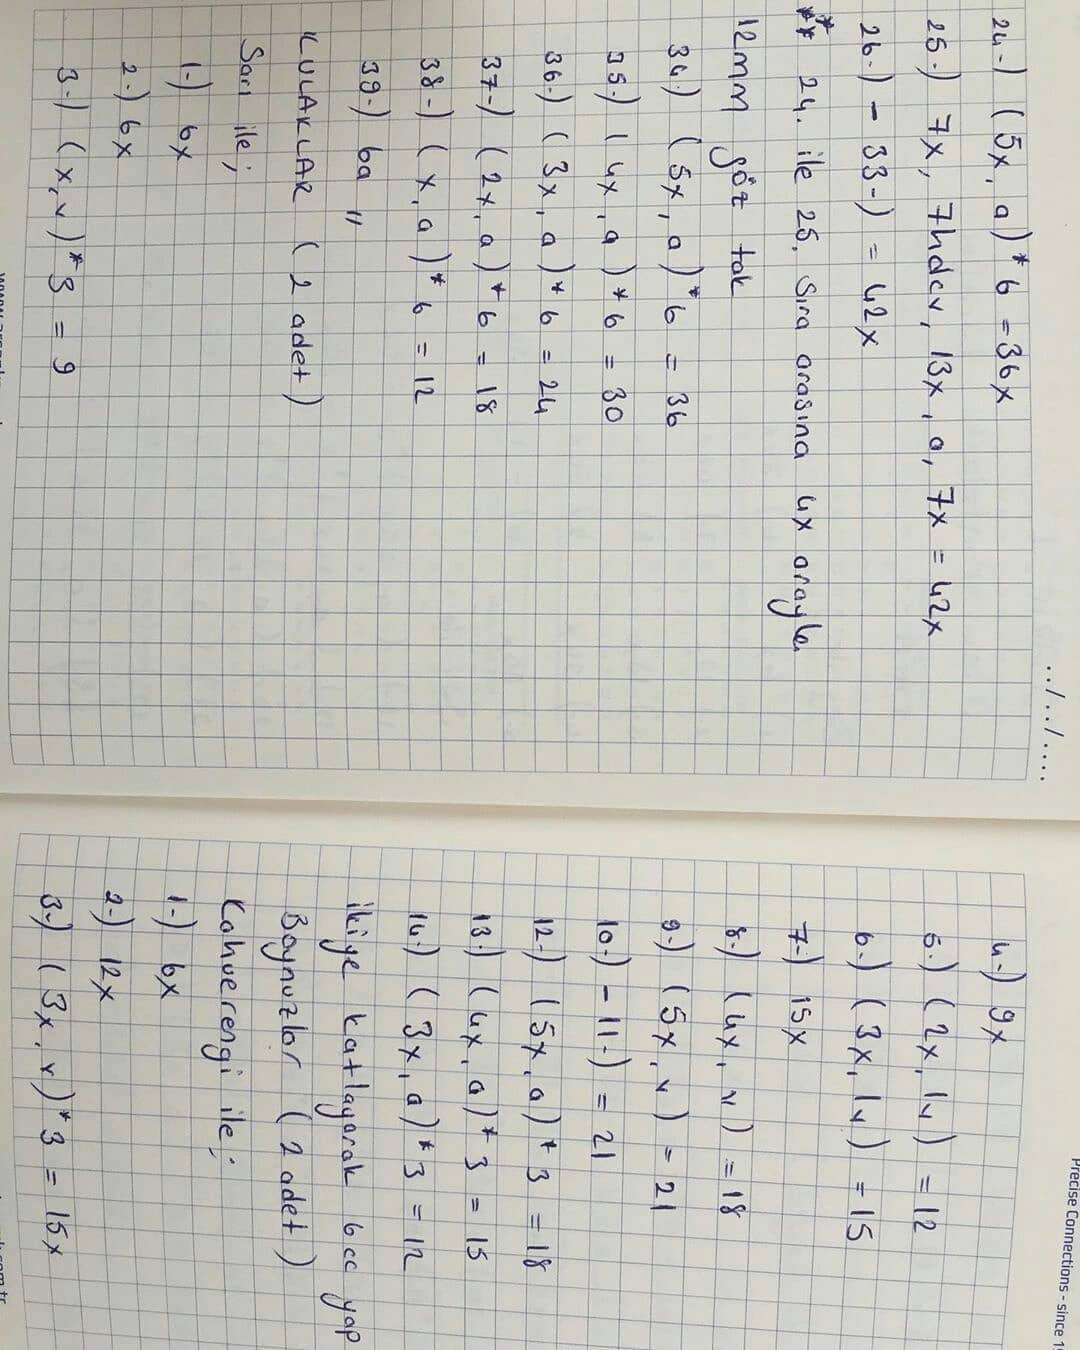 ../../....
24-) (5x, a)* 6 = 36x
25-) 7x, 7hdcv, 13x, a, 7x = 42x
26-) - 33-) = 42x
** 24. ile 25. Sıra arasına 4x arayla
12mm göz tak
34-) (5x, a)* 6 = 36
35-) (4x, a)* 6 = 30
36-) (3x, a)* 6 = 24
37-) (2x, a)* 6 = 18
38-) (x, a)* 6 = 12
39-) 6a "
KULAKLAR (2 adet)
Sarı ile;
1-) 6x
2-) 6x
3-) (x, v)* 3 = 9
Precise Connections - since
4-) 9x
5-) (2x, 1v) = 12
6-) (3x, 1v) = 15
7-) 15x
8-) (4x, v) = 18
9-) (5x, v) = 21
10-) - 11-) = 21
12-) (5x, a)* 3 = 18
13-) (4x, a)* 3 = 15
14-) (3x, a)* 3 = 12
ikiye katlayarak 6cc yap
Boynuzlar (2 adet)
Kahverengi ile;
1-) 6x
2-) 12x
3-) (3x, v)* 3 = 15x